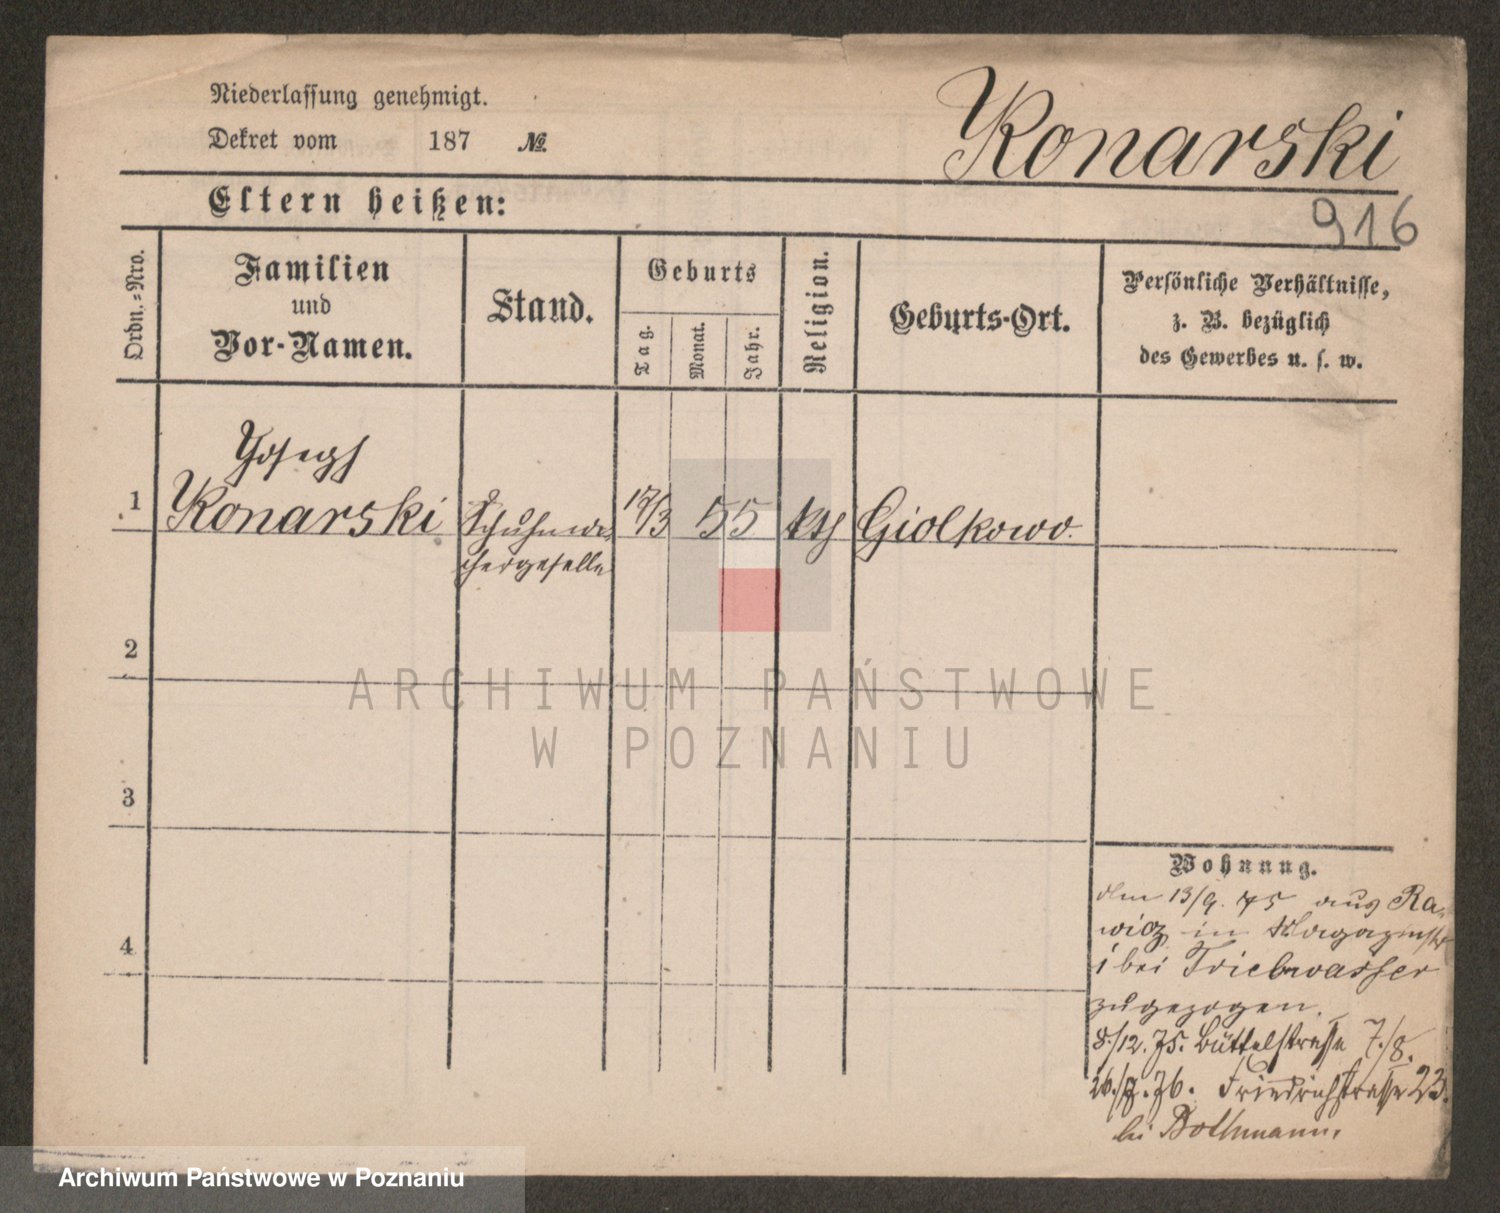 Niederlassung genehmigt.
Dekret vom 187 №
Konarski
Eltern heißen:
916
Ordn.-Nro.
Familien
und
Vor-Namen.
Stand.
Geburts
Tag.
Monat.
Jahr.
Religion.
Geburts-Ort.
Persönliche Verhältnisse,
z. B. bezüglich
des Gewerbes u. s. w.
Joseph
1 Konarski Schuhma- 55 kth Giolkowo.
chergeselle
2
3
4
ARCHIWUM PAŃSTWOWE
W POZNANIU
Wohnung.
den 13/9. 75 aus Ra-
wicz in Magazinstr
1 bei Triebwasser
zugezogen.
8./12. 75. Büttelstrasse 7./8.
76. Friedrichstrasse 23.
bei Bothmann.
Archiwum Państwowe w Poznaniu